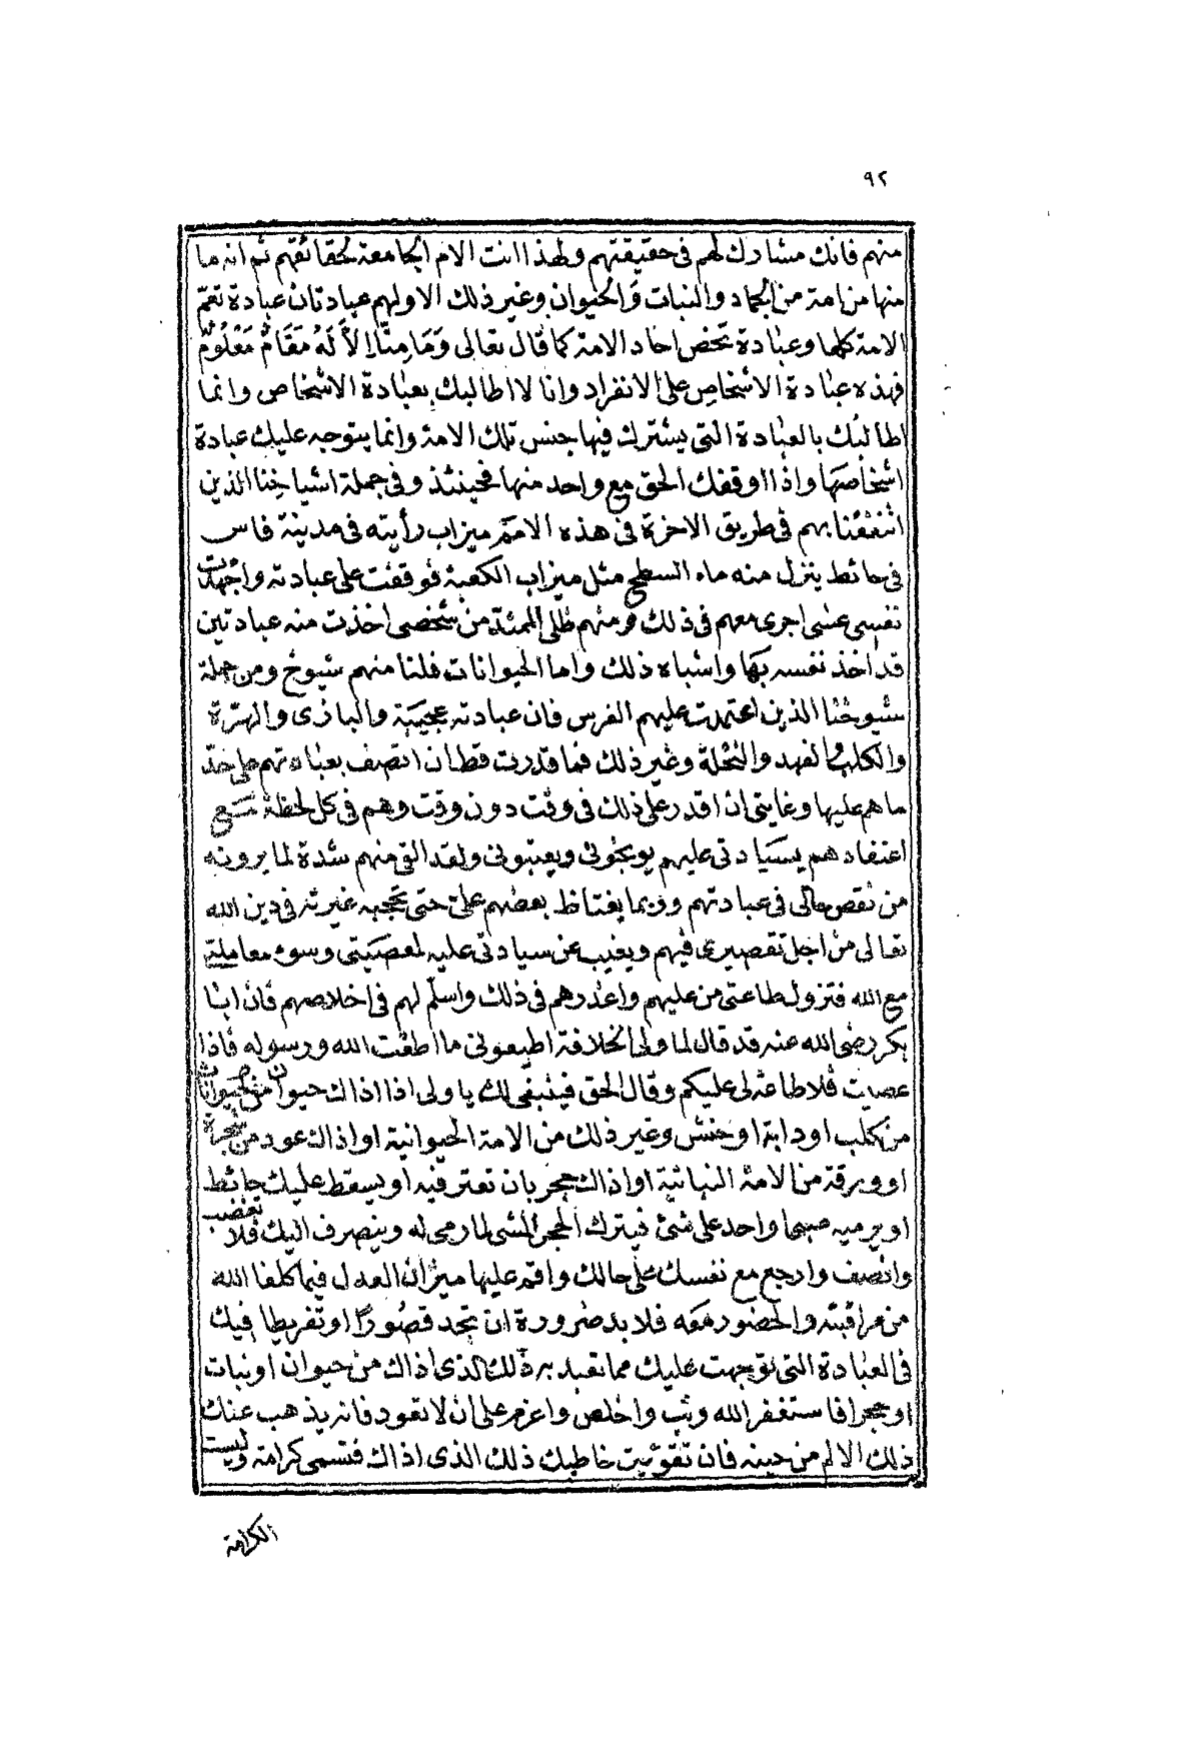 ٩٢
منهم فانك مشارك لهم فى حقيقتهم ولهذا انت الام الجامعة لحقائقهم ثم انه ما
منها من امة من الجماد والنبات وَالحيوان وغير ذلك الا ولهم عبادتان عبادة تعمّ
الامة كلها وعبادة تخص احاد الامة كما قال تعالى وَمَا مِنَّا اِلاَّ لَهُ مَقَامٌ مَعْلُومٌ
فهذه عبادة الاشخاص على الانفراد وانا لا اطالبك بعبادة الاشخاص وانما
اطالبك بالعبادة التى يشترك فيها جنس تلك الامة وانما يتوجه عليك عبادة
اشخاصها واذا اوقفك الحق مع واحد منها فحينئذ وفى جملة اشياخِنا الذين
انتفعنا بهم فى طريق الاخرة فى هذه الامم ميزاب رأيته فى مدينة فاس
فى حائط ينزل منه ماء السطح مثل ميزاب الكعبة فوقفت على عبادته واجهدت
نفسى عسى اجرى معهم فى ذلك ومنهم ظلى الممتد من شخصى اخذت منه عبادتين
قد اخذ نفسه بها واشباه ذلك واما الحيوانات فلنا منهم شيوخ ومن جملة
شيوخنا الذين اعتمدت عليهم الفرس فان عبادته عجيبة والبازى والهرّة
والكلب والفهد والنحلة وغير ذلك فما قدرت قط ان اتصف بعبادتهم على حدّ
ما هم عليها وغايتى ان اقدر على ذلك فى وقت دون وقت وهم فى كل لحظة مع
اعتقادهم بسيادتى عليهم يوبخونى ويعتبونى ولقد القى منهم شدة لما يرونه
من نقص حالى فى عبادتهم وربما يغتاظ بعضهم علىّ حتى تحجبه غيرته فى دين الله
تعالى من اجل تقصيرى فيهم ويغيب عن سيادتى عليه لمعصيتى وسوء معاملة
مع الله فتزول طاعتى من عليهم واعذرهم فى ذلك واسلّم لهم فى اخلاصهم فان ابا
بكر رضى الله عنه قد قال لما ولى الخلافة اطيعونى ما اطعت الله ورسوله فاذا
عصيت فلا طاعة لى عليكم وقال الحق فينبغى لك يا ولى اذا اذاك حيوان من الحيوانات
من كلب او دابة او حنش وغير ذلك من الامة الحيوانية او اذاك عود من شجرة
او ورقة من الامة النباتية او اذاك حجر بان تعثر فيه او يسقط عليك حائط
او يرميه صبى او احد على شئ فيترك الحجر الشى لما رمى له وينصرف اليك فلا تغضب
وانصف وارجع مع نفسك على حالك واقم عليها ميزان العدل فيما كلفنا الله
من مراقبته والحضور معه فلا بد ضرورة ان تجد قصُورًا او تفريطا فيك
فى العبادة التى توجهت عليك مما تعبد به ذلك الذى اذاك من حيوان او نبات
او حجر فاستغفر الله وتب واخلص واعزم على ان لا تعود فانه يذهب عنك
ذلك الالم من حينه فان تقويت خاطبك ذلك الذى اذاك فتسمى كرامة وليست
الكرامة